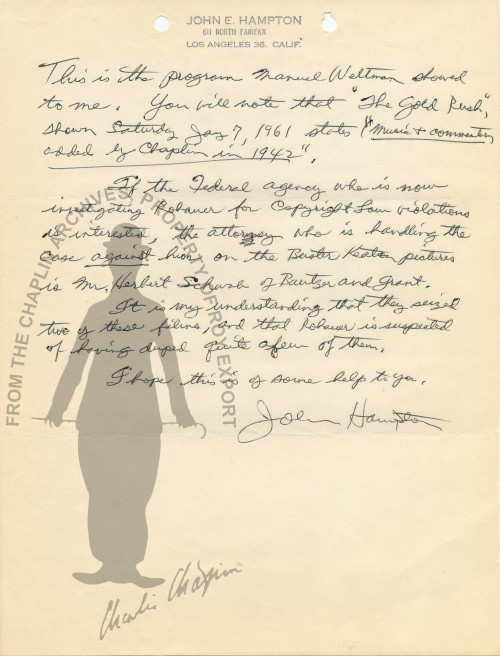 JOHN E. HAMPTON
611 NORTH FAIRFAX
LOS ANGELES 36, CALIF.
This is the program Manuel Weltman showed
to me. You will note that "The Gold Rush",
shown Saturday Jan 7, 1961 states "Music + commentary
added by Chaplin in 1942".
If the Federal agency who is now
investigating Rohauer for Copyright Law violations
is interested, the attorney who is handling the
case against him on the Buster Keaton pictures
is Mr. Herbert Schwab of Bautzer and Grant.
It is my understanding that they seized
two of these films, and that Rohauer is suspected
of having duped quite a few of them.
I hope this is of some help to you.
John Hampton
FROM THE CHAPLIN ARCHIVES, PROPERTY OF ROY EXPORT
Charlie Chaplin